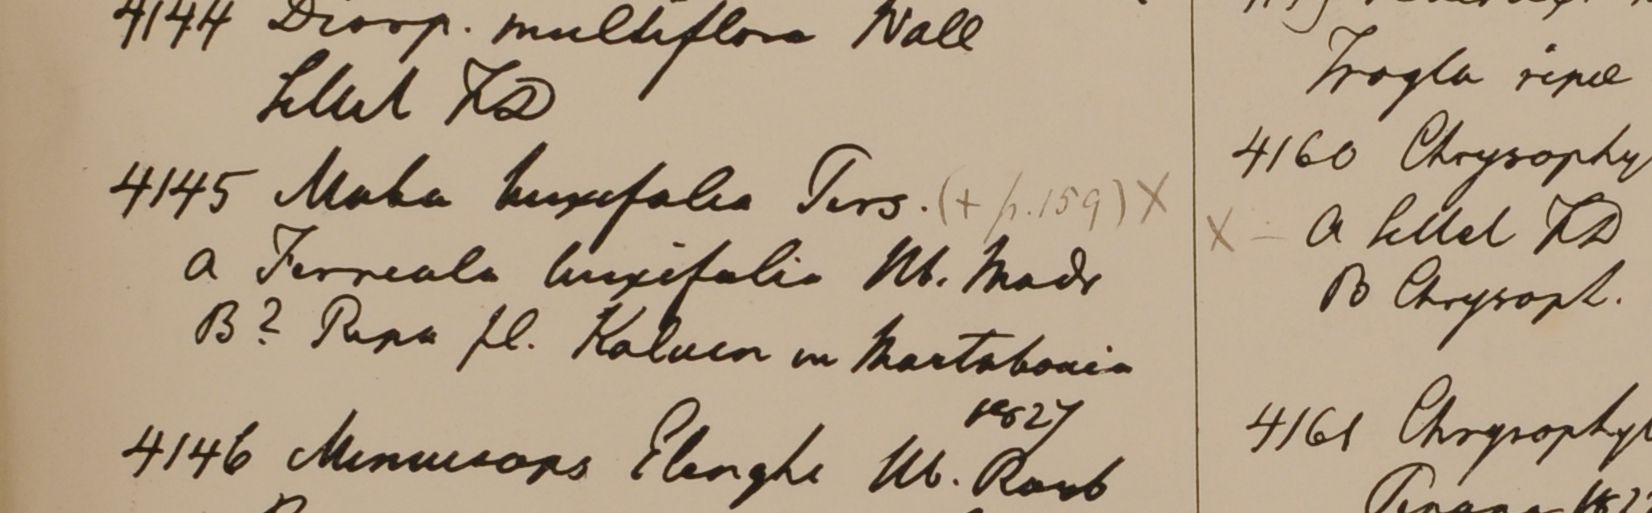 4144 Diosp. multiflora Wall
4145 Maba buxifolia Pers. (+ p.159) X
a Ferreola buxifolia Hb. Madr
B? Ripa fl. Kaluen in Martabania
1827
4146 Mimusops Elenghi Hb. Roxb
ripæ
4160 Chrysophy
X – a HD
B Chrysoph.
4161 Chrysophyl